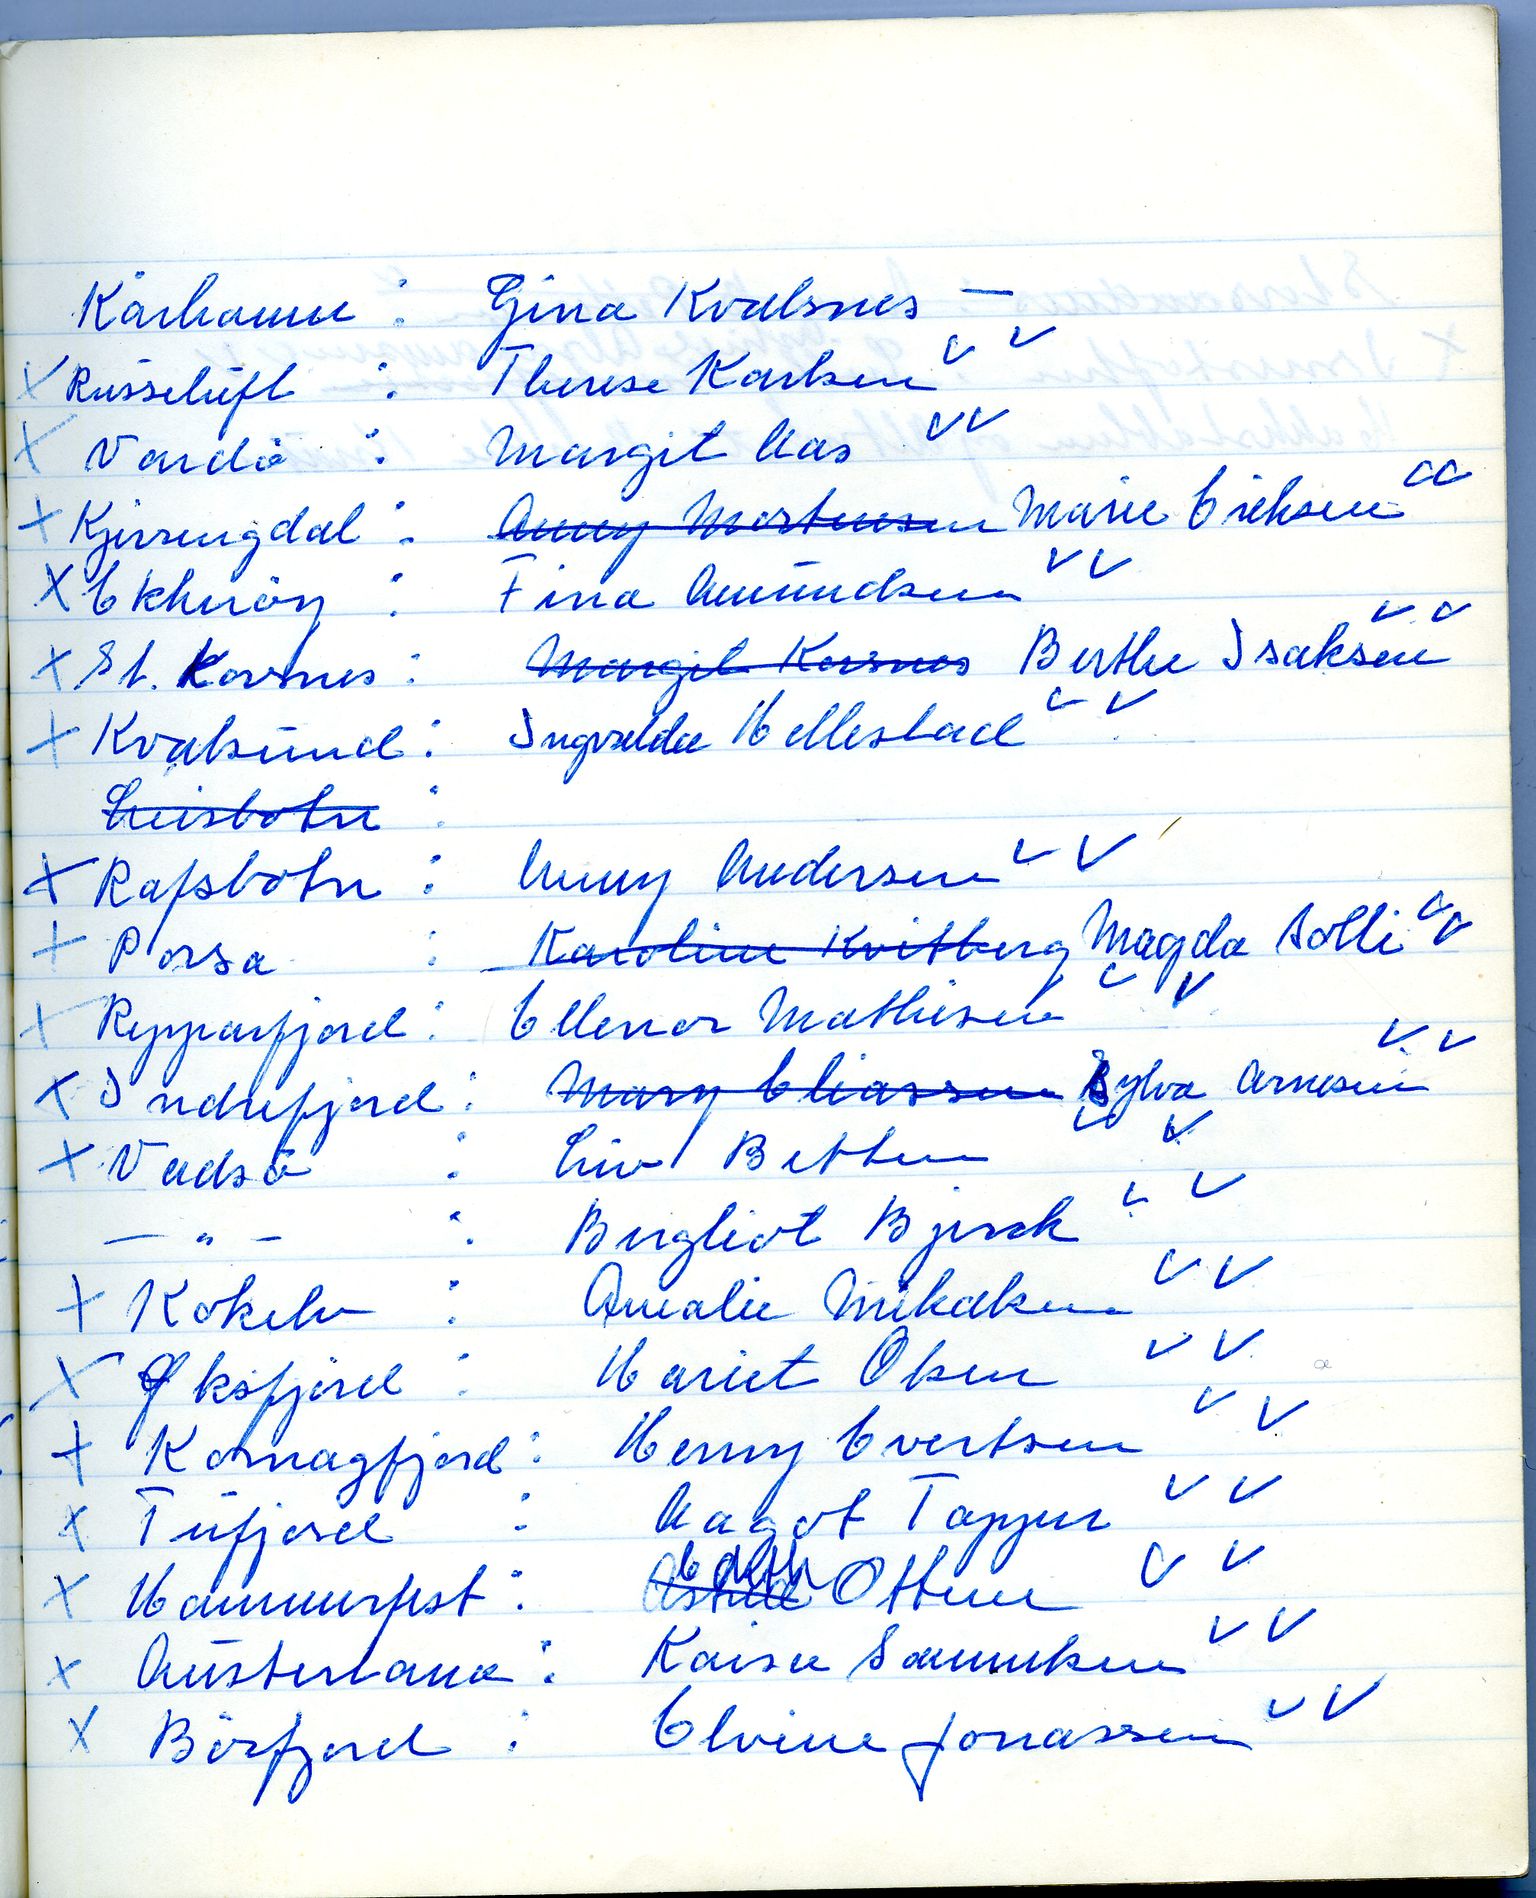 Kårhamn : Gina Kvalsnes —
X Russeluft : Therese Karlsen ✓ ✓
X Vardö : Margit Aas ✓ ✓
X Kjerringdal : Anny Mortensen Marie Eriksen ✓ ✓
X Ekkeröy : Fina Amundsen ✓ ✓
X St. Korsnes : Margit Korsnes Berthe Isaksen ✓ ✓
X Kvalsund : Ingvalda Hellestad ✓ ✓
Leirsbotn :
X Rafsbotn : Anny Andersen ✓ ✓
X Porsa : Karoline Kvitberg Magda Solli ✓ ✓
X Repparfjord : Ellenor Mathisen ✓ ✓
X Indrefjord : Mary Eliassen Sylva Arnesen ✓ ✓
X Vadsö : Liv Betten ✓ ✓
— " — : Bergliot Bjerck ✓ ✓
X Kokelv : Amalie Mikalsen ✓ ✓
X Øksfjord : Hariet Olsen ✓ ✓
X Komagfjord : Henny Evertsen ✓ ✓
X Tufjord : Aagot Tapper ✓ ✓
X Hammerfest : Astrid Edith Ottem ✓ ✓
X Austertana : Kaisa Samuelsen ✓ ✓
X Börfjord : Elvine Jonassen ✓ ✓